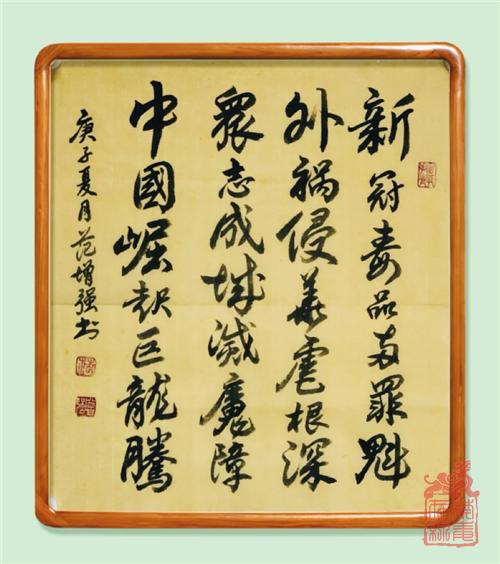 新冠毒品两罪魁
外祸侵华虐根深
眾志成城滅魔障
中國崛起巨龍騰
庚子夏月范增强书